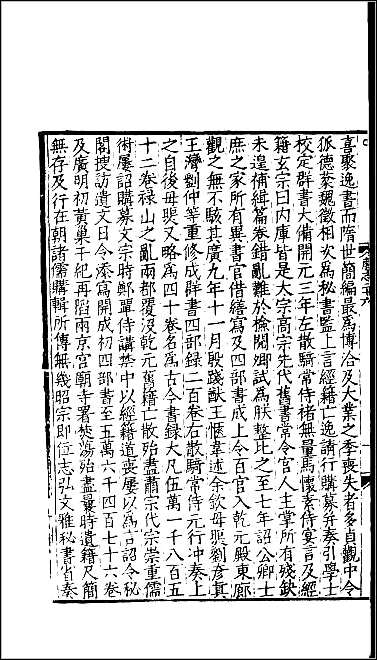 喜聚逸書而隋世簡編最爲博洽及大業之季喪失者多貞觀中令
狐德棻魏徵相次爲秘書監上言經籍亡逸請行購募并奏引學士
校定群書大備開元三年左散騎常侍褚無量馬懷素侍宴言及經
籍玄宗曰内庫皆是太宗高宗先代舊書常令宮人主掌所有殘缺
未遑補緝篇卷錯亂難於檢閱卿試爲朕整比之至七年詔公卿士
庶之家所有異書官借繕寫及四部書成上令百官入乾元殿東廊
觀之無不駭其廣九年十一月殷踐猷王愜韋述余欽毋煚劉彥真
王灣劉仲等重修成群書四部錄二百卷右散騎常侍元行冲奏上
之自後毋煚又略爲四十卷名爲古今書錄大凡伍萬一千八百五
十二卷禄山之亂兩都覆沒乾元舊籍亡散殆盡肅宗代宗崇重儒
術屢詔購募文宗時鄭覃侍講禁中以經籍道喪屢以爲言詔令秘
閣搜訪遺文日令添寫開成初四部書至五萬六千四百七十六卷
及廣明初黃巢干紀再䧟兩京宮廟寺署焚蕩殆盡曩時遺籍尺簡
無存及行在朝諸儒購輯所傳無幾昭宗即位志弘文雅秘書省奏